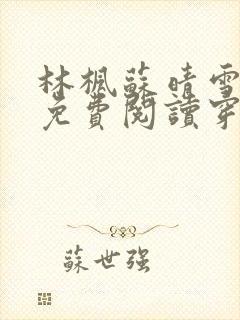 林楓蘇晴雪
免費閱讀穿
蘇世强